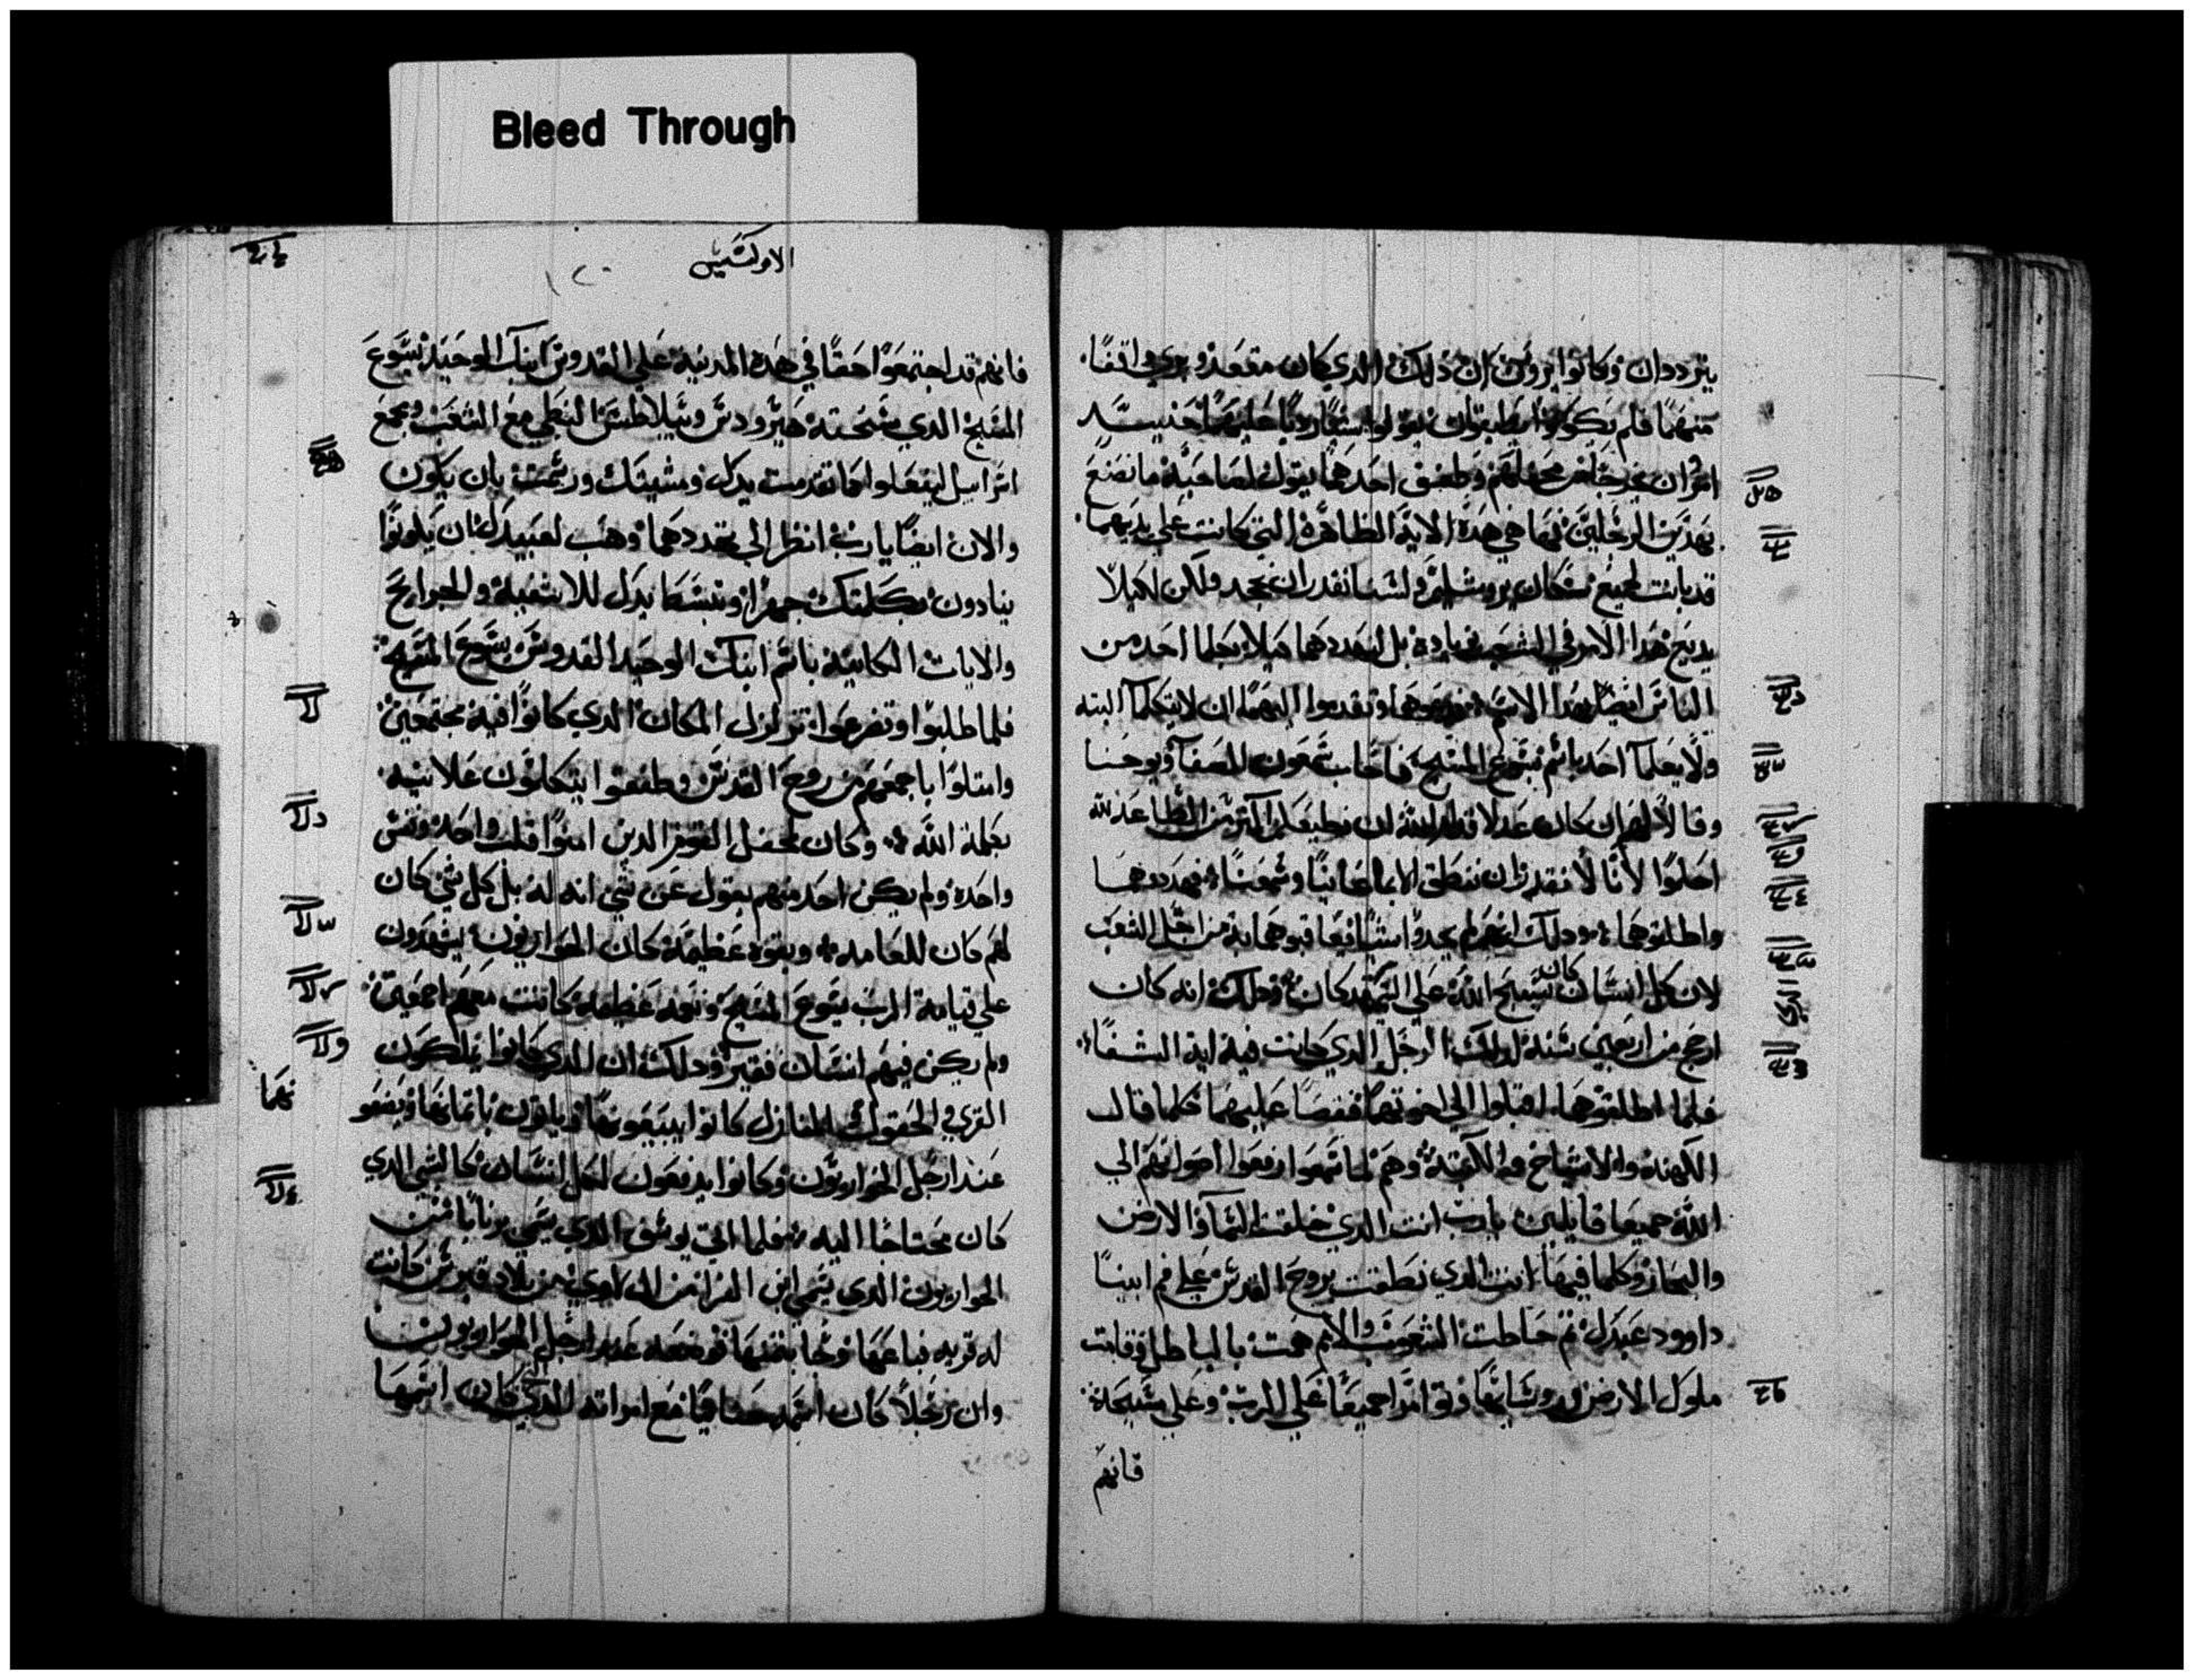 Bleed Through
يترددان وكانوا يرون ان ذلك الذي كان مقعد وبري واقفا
منهما فلم يكونوا يطيقون ان يقولوا شيا رديا عليهما حنيد
امروا ان يخرجا من محفلهم وطفق احدهما يقول لصاحبه ما نصنع
بهدين الرجلين فها هي هده الاية الظاهره التي كانت علي يديهما
قد بانت لجميع سكان يروشليم ولسنا نقدر ان نجحد ولكن لكيلا
يديع هدا الامر في الشعب زياده بل لنهددهما كيلا يكلما احد من
الناس ايضا بهدا الاسم ودعوهما وتقدموا اليهما ان لا يتكلما البته
ولا يعلما احد باسم يسوع المسيح فاجاب شمعون الصفا ويوحنا
وقالا لهم ان كان عدلا قدام الله ان نطيعكم اكتر من الطاعه لله
احكموا لانا لا نقدر ان ننطق الا بما عاينا وسمعنا فهددوهما
واطلقوهما ودلك انهم لم يجدوا شيا يعاقبوهما به من اجل الشعب
لان كل انسان كان يسبح الله علي الشي قد كان ودلك انه كان
ارجح من اربعين سنه لدلك الرجل الدي كانت فيه اية الشفا
فلما اطلقوهما اقبلوا الي اخوتهما فقصا عليهما كلما قال
الكهنه والاشياخ والكتبة وهم لما سمعوا رفعوا اصواتهم الي
الله جميعا قايلين يارب انت الدي خلقت السما والارض
والبحار وكلما فيها انت الدي نطقت بروح القدس علي فم ابينا
داوود عبدك لم حاطت الشعوب والامم همت بالباطل وقامت
ملوك الارض وروسايها وتوامرا جميعا علي الرب وعلي مسيحه
فانهم
الابركسيس
١٢٠
فانهم قد اجتمعوا حقا في هده المدينه علي القدوس ابنك الوحيد يسوع
المسيح الدي مسحته هيرودس وبيلاطس النبطي مع الشعب وجمع
اسراييل ليفعلوا كما تقدمت يدك ومشيتك ورسمت بان يكون
والان ايضا يارب انظر الي تهددهما وهب لعبيدك ان يكونوا
ينادون بكلمتك جهرا وتبسط يدك للاشفيه والجرايح
والايات الكاينه باسم ابنك الوحيد القدوس يسوع المسيح
فلما طلبوا وتضرعوا تزلزل المكان الدي كانوا فيه مجتمعين
وامتلوا باجمعهم من روح القدس وطفقوا يتكلمون علانيه
بكلمة الله وكان لمحفل القوم الدين امنوا قلب واحد ونفس
واحده ولم يكن احد منهم يقول عن شي انه له بل كل شي كان
لهم كان للعامه وبقوه عظيمه كان الحواريون يشهدون
علي قيامة الرب يسوع المسيح ونعمه عظيمه كانت معهم اجمعين
ولم يكن فيهم انسان فقير ودلك ان الدي كانوا يملكون
القري والحقول والمنازل كانوا يبيعونها وياتون باتمانها ويضعو
نهما
عند ارجل الحواريون وكانوا يدفعون لكل انسان كالشي الدي
كان محتاجا اليه فلما اتي يوسف الدي يسمي برنابا من
الحواريون الدي يسمي ابن العزا من ال لاوي من بلاد قبرس كانت
له قريه فباعها وجا بتمنها فوضعه عند ارجل الحواريون
وان رجلا كان اسمه حنانيا مع امراته الدي كان اسمها